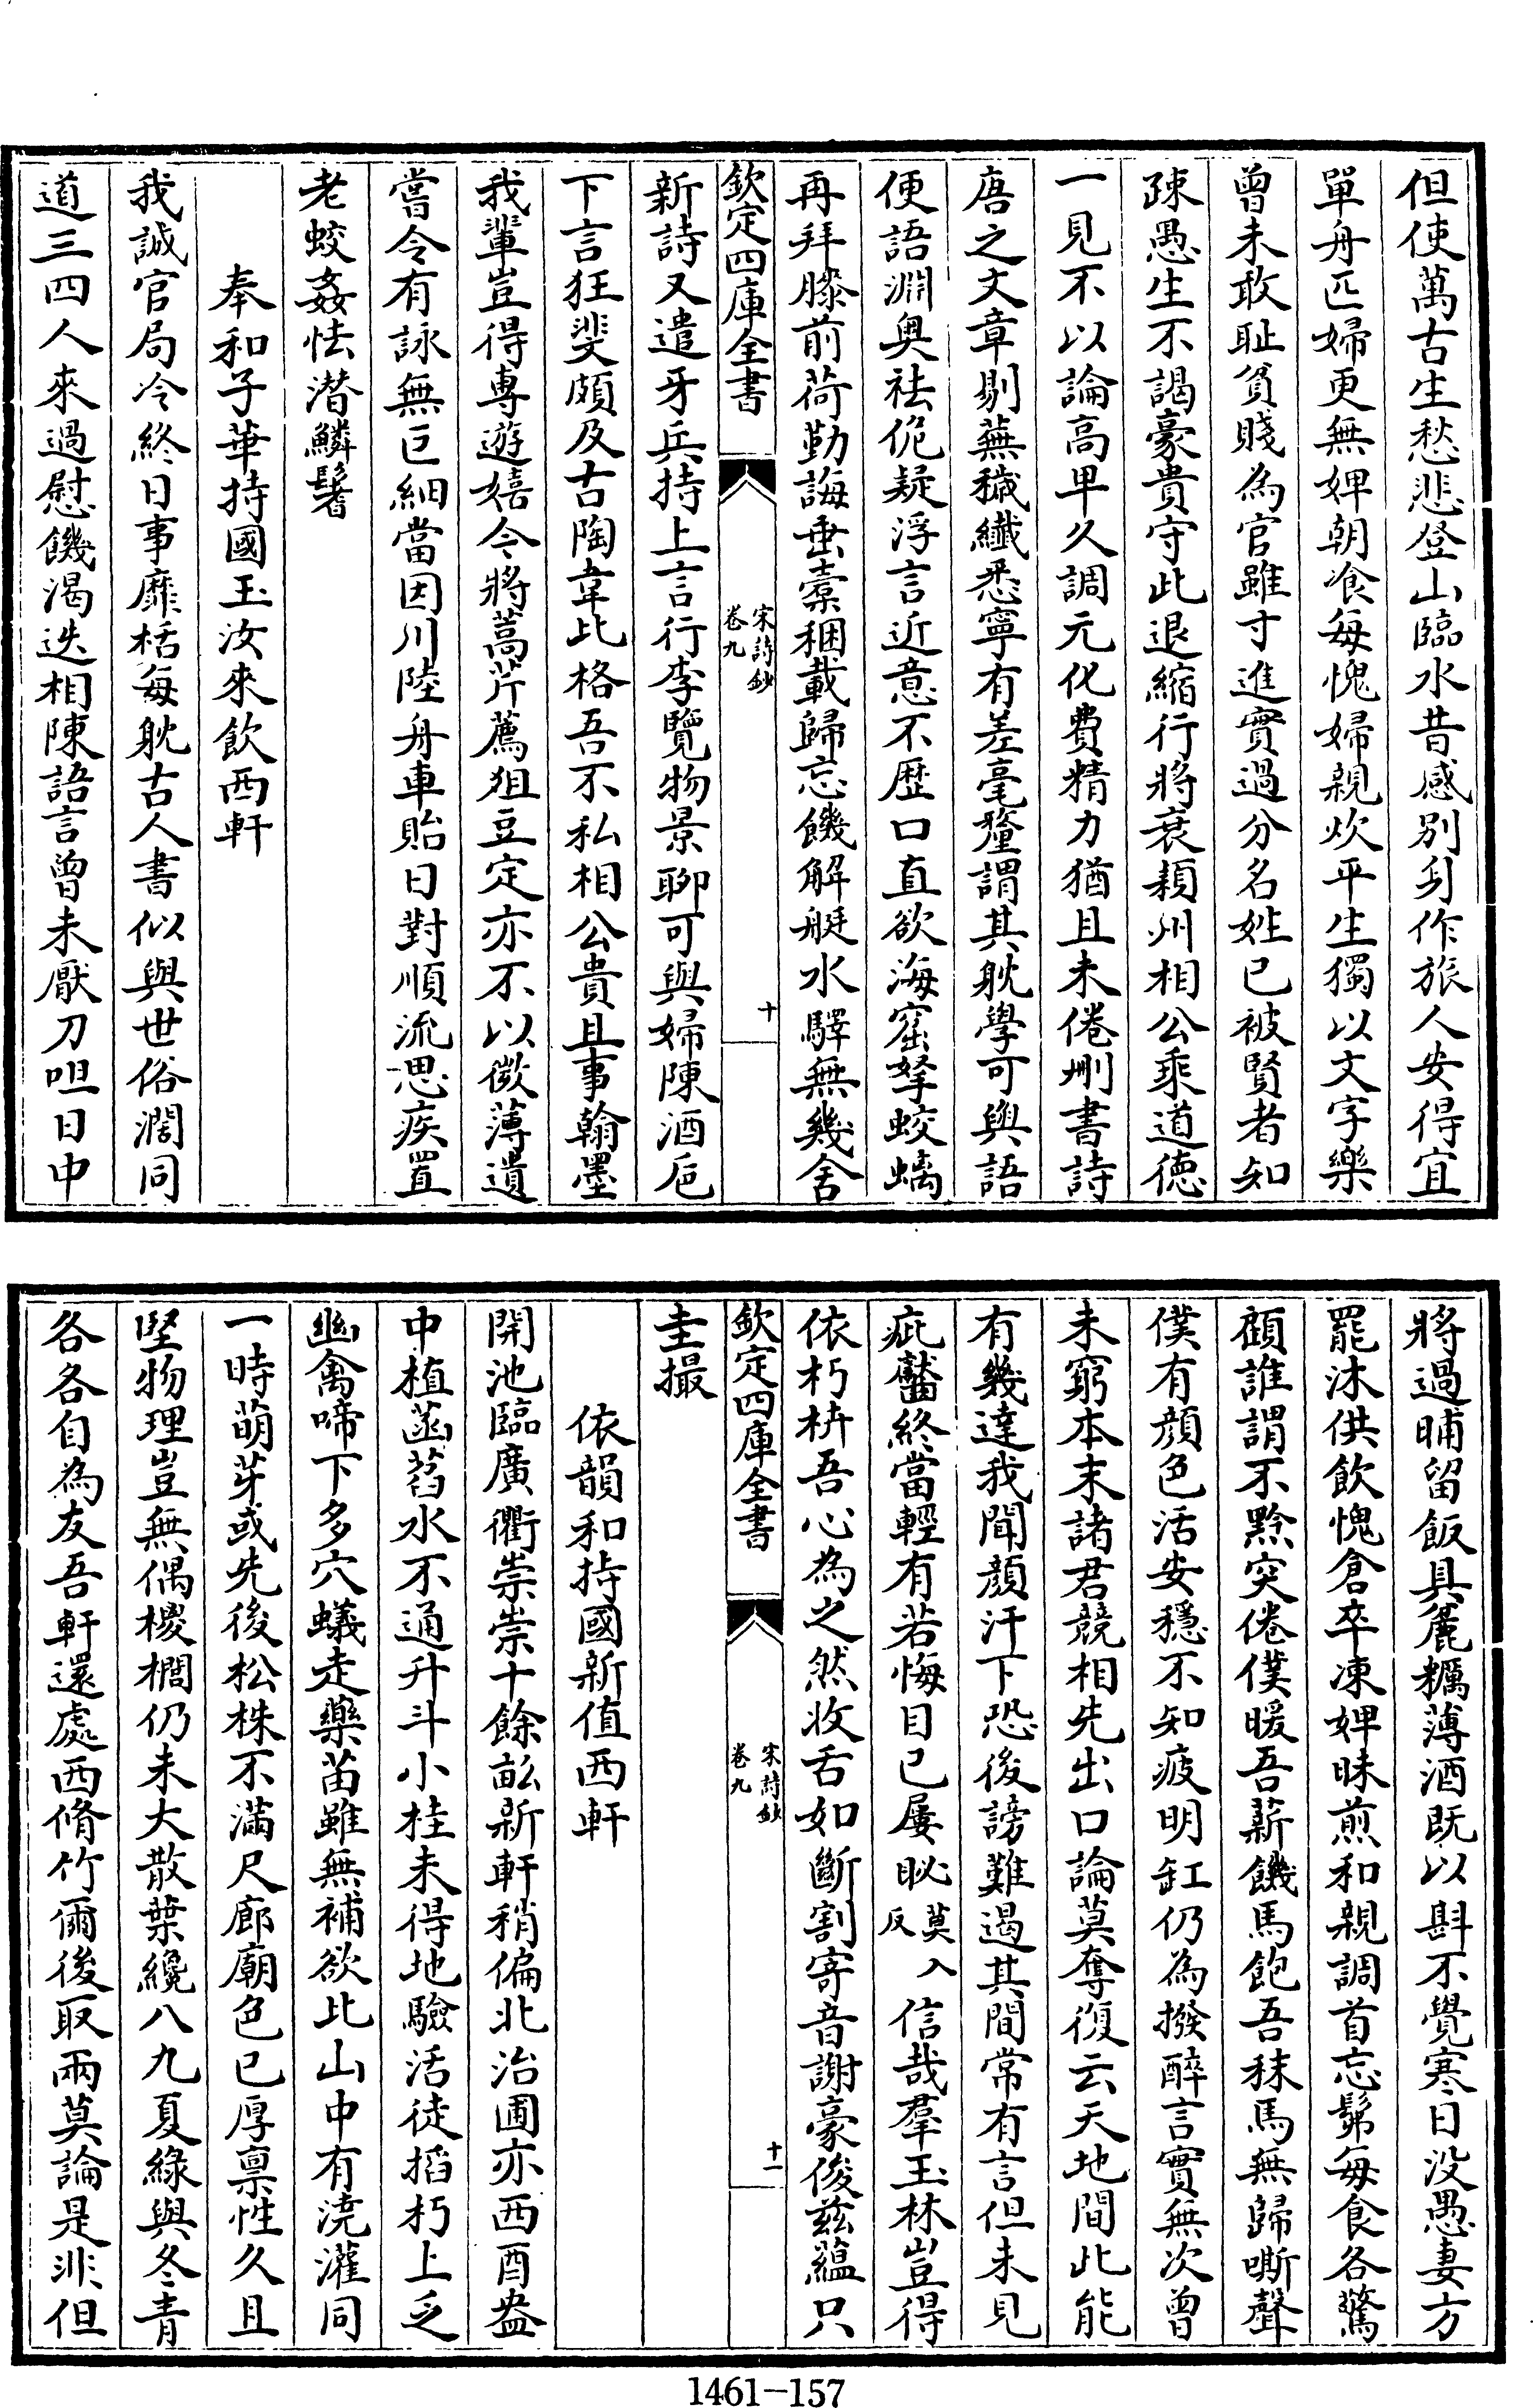 但使萬古生愁悲登山臨水昔感别矧作旅人安得宜
單舟匹婦更無婢朝飡每愧婦親炊平生獨以文字樂
曾未敢耻貧賤為官雖寸進實過分名姓已被賢者知
疎愚生不謁豪貴守此退縮行將衰潁州相公秉道徳
一見不以論高卑久調元化費精力猶且未倦刪書詩
唐之文章剔蕪穢纎悉寧有差毫釐謂其躭學可與語
便語淵奥袪佹疑浮言近意不歴口直欲海窟拏蛟螭
再拜膝前荷勤誨垂橐稇載歸忘饑解艇水驛無幾舍
欽定四庫全書
宋詩鈔
卷九
十
新詩又遣牙兵持上言行李覽物景聊可與婦陳酒巵
下言狂斐頗及古陶韋比格吾不私相公貴且事翰墨
我輩豈得專遊嬉今將蒿芹薦俎豆定亦不以微薄遺
嘗令有詠無巨細當因川陸舟車貽日對順流思疾置
老蛟姦怯潛鱗鬐
奉和子華持國玉汝來飲西軒
我誠官局冷終日事靡栝每躭古人書似與世俗濶同
道三四人來過慰饑渴迭相陳語言曾未厭刀呾日中
將過晡留飯具麄糲薄酒既以斟不覺寒日没愚妻方
罷沐供飲愧倉卒凍婢昧煎和親調首忘髴每食各驚
顧誰謂不黔突倦僕暖吾薪饑馬飽吾秣馬無歸嘶聲
僕有顔色活安穩不知疲明缸仍為撥醉言實無次曾
未窮本末諸君競相先出口論莫奪復云天地間此能
有幾達我聞顔汗下恐後謗難遏其間常有言但未見
疵齾終當輕有若悔目已屢眍莫入反信哉羣玉林豈得
依朽枿吾心為之然收舌如斷割寄音謝豪俊兹藴只
欽定四庫全書
宋詩鈔
卷九
十一
圭撮
依韻和持國新值西軒
開池臨廣衢崇崇十餘畝新軒稍偏北治圃亦西酉盎
中植菡萏水不通升斗小桂未得地驗活徒搯朽上乏
幽禽啼下多穴蟻走藥苗雖無補欲此山中有澆灌同
一時萌芽或先後松株不滿尺廊廟色已厚禀性久且
堅物理豈無偶椶櫚仍未大散葉纔八九夏緑與冬青
各各自為友吾軒還處西脩竹爾後取兩莫論是非但
1461-157